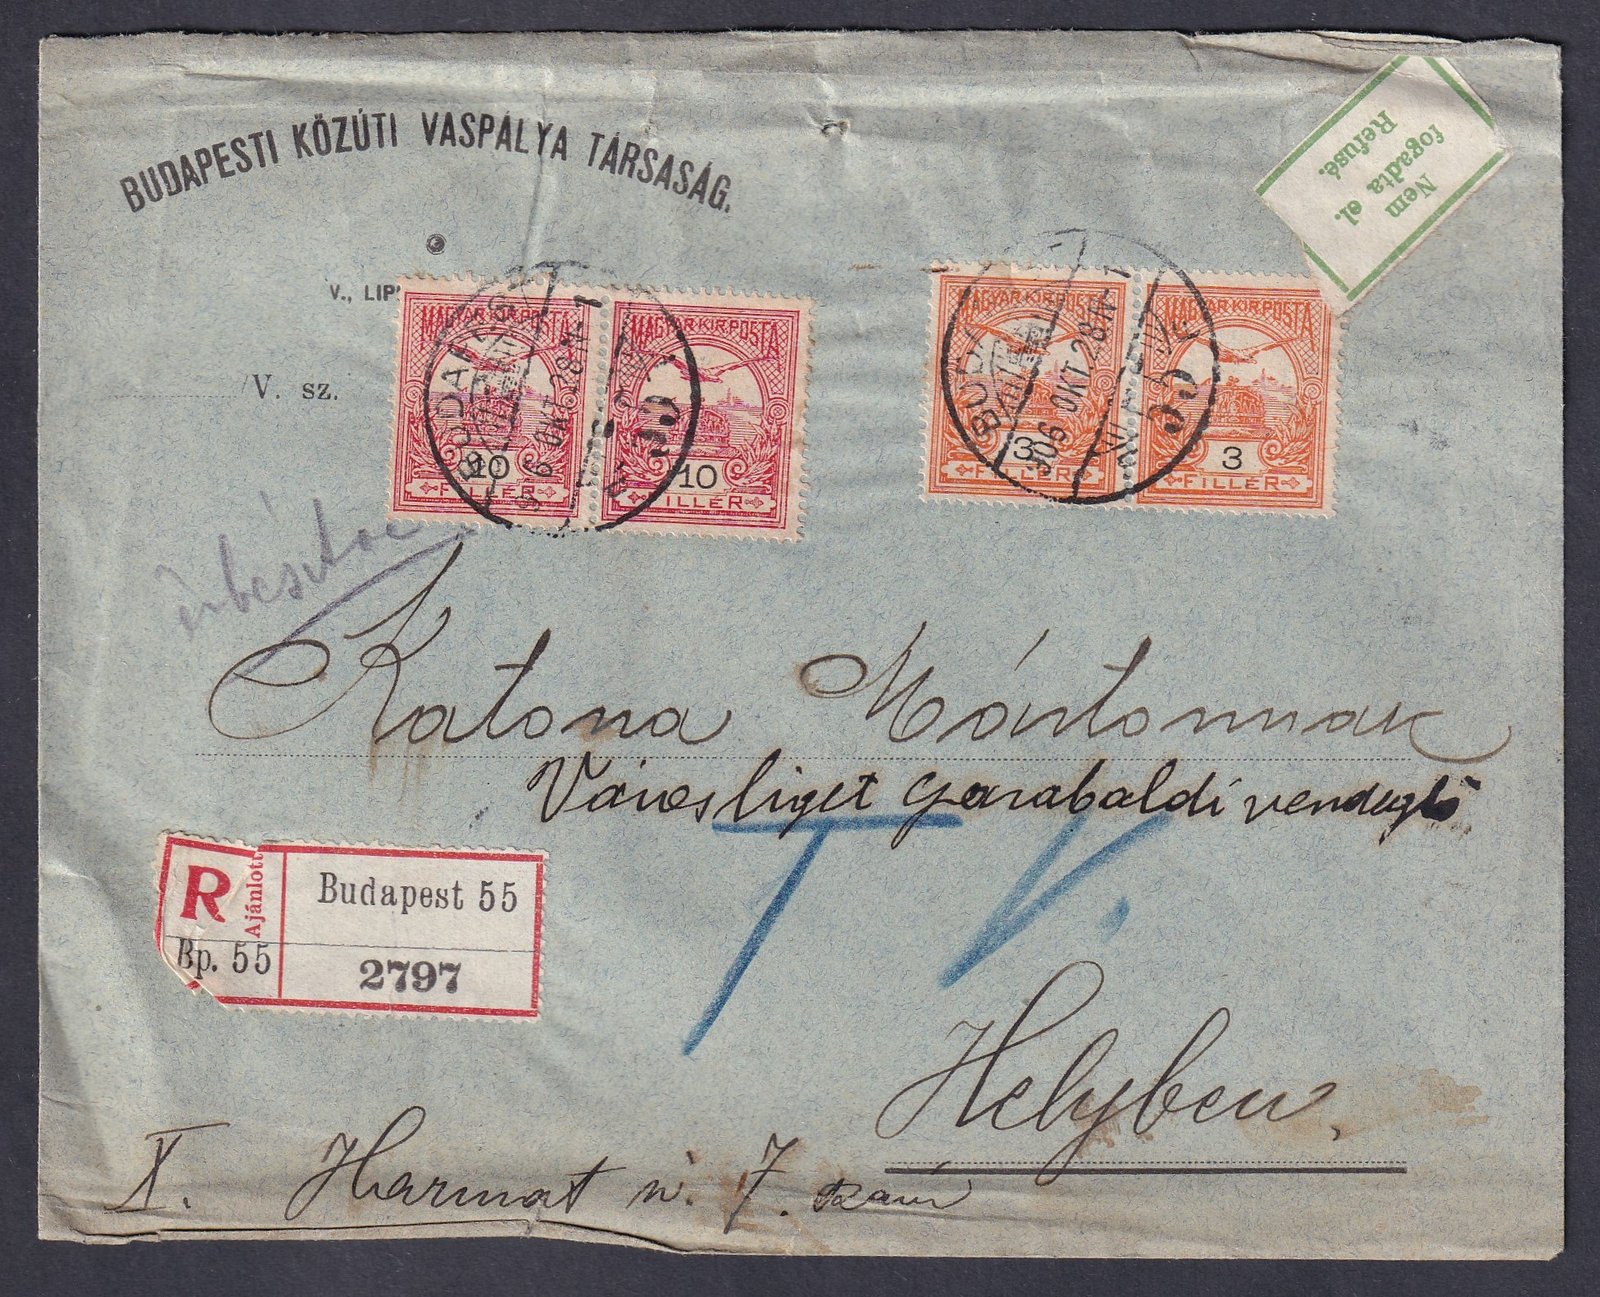 BUDAPESTI KÖZÚTI VASPÁLYA TÁRSASÁG.
Nem
fogadta el.
Refusé.
V., LIP
V. sz.
MAGYAR KIR. POSTA
10
FILLÉR
MAGYAR KIR. POSTA
10
FILLÉR
MAGYAR KIR. POSTA
3
FILLÉR
MAGYAR KIR. POSTA
3
FILLÉR
BUDAPEST
906 OKT 28 N 1
55
BUDAPEST
906 OKT 28 N 1
55
Katona Mártonnak
Városliget Garabaldi vendeglő
T V.
R
Ajánlott
Bp. 55
Budapest 55
2797
Helyben,
X. Harmat u. 7. szám